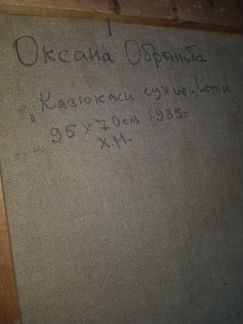 1
Оксана Обрыньба
"Казюкаси сухицветы
95 х 70 см 1985г
х.м.